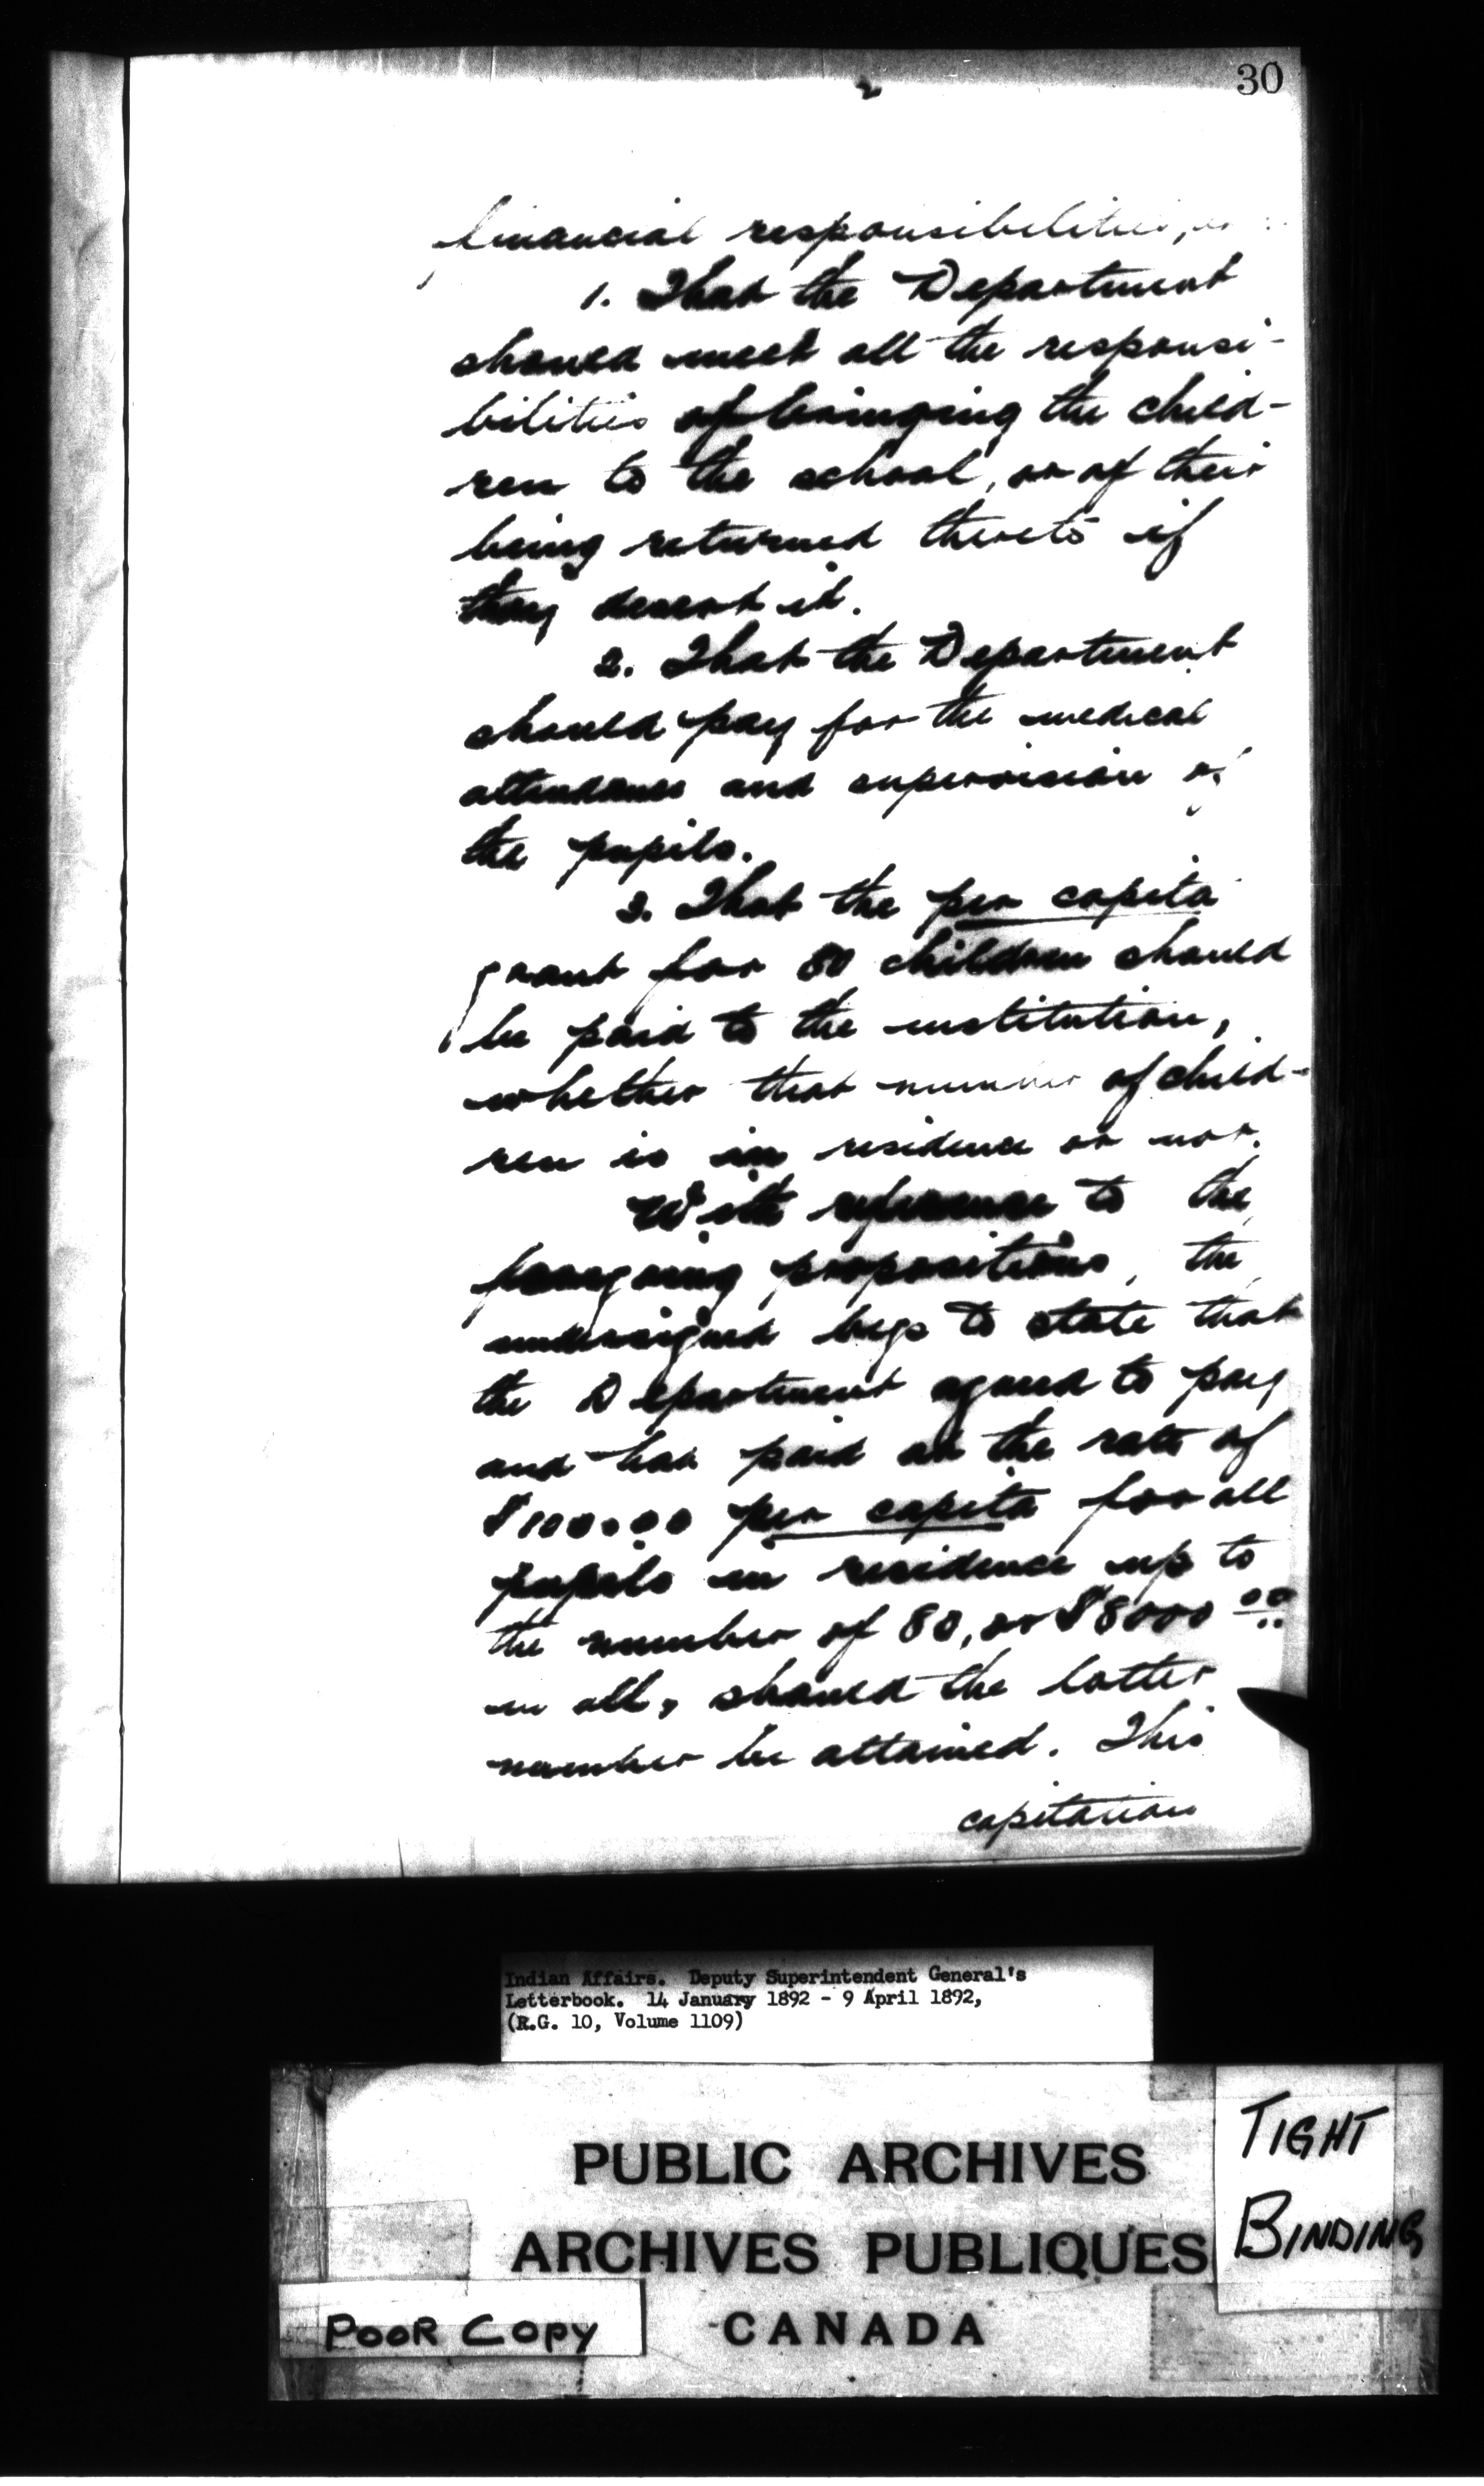 30
2
financial responsibilities,
1. That the Department
should meet all the responsi-
bilities of bringing the child-
ren to the school, or of their
being returned thereto if
they desert it.
2. That the Department
should pay for the medical
attendance and supervision of
the pupils.
3. That the per capita
grant for 80 children should
be paid to the institution,
whether that number of child-
ren is in residence or not.
With reference to the
foregoing propositions, the
undersigned begs to state that
the Department agreed to pay
and has paid at the rate of
$100.00 per capita for all
pupils in residence up to
the number of 80, or $8000 00
in all, should the latter
number be attained. This
capitation
Indian Affairs. Deputy Superintendent General's
Letterbook. 14 January 1892 - 9 April 1892,
(R.G. 10, Volume 1109)
PUBLIC ARCHIVES
ARCHIVES PUBLIQUES
CANADA
TIGHT
BINDING
POOR COPY